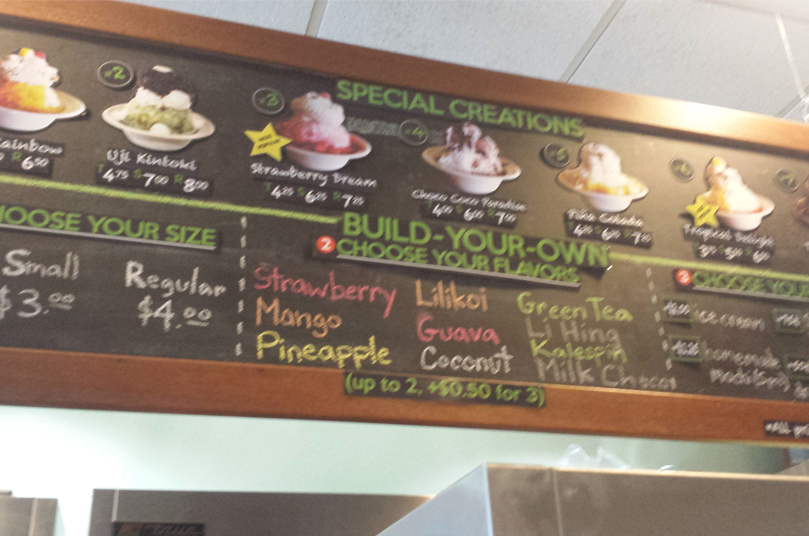 SPECIAL CREATIONS
#2
#3
#4
Rainbow
R 6⁵⁰
Uji Kintoki
4⁷⁵ S 7⁰⁰ R 8⁰⁰
Strawberry Dream
4²⁵ S 6²⁵ R 7²⁵
Choco Coco Paradise
4⁰⁰ S 6⁰⁰ R 7⁰⁰
Piña Colada
Tropical Delight
HOOSE YOUR SIZE
Small
$3.00
Regular
$4.00
BUILD-YOUR-OWN
2 CHOOSE YOUR FLAVORS
Strawberry
Mango
Pineapple
Lilikoi
Guava
Coconut
Green Tea
Li Hing
Kalespin
Milk Chocol
(up to 2, +$0.50 for 3)
3 CHOOSE YOU
ice cream
homemade
mochi